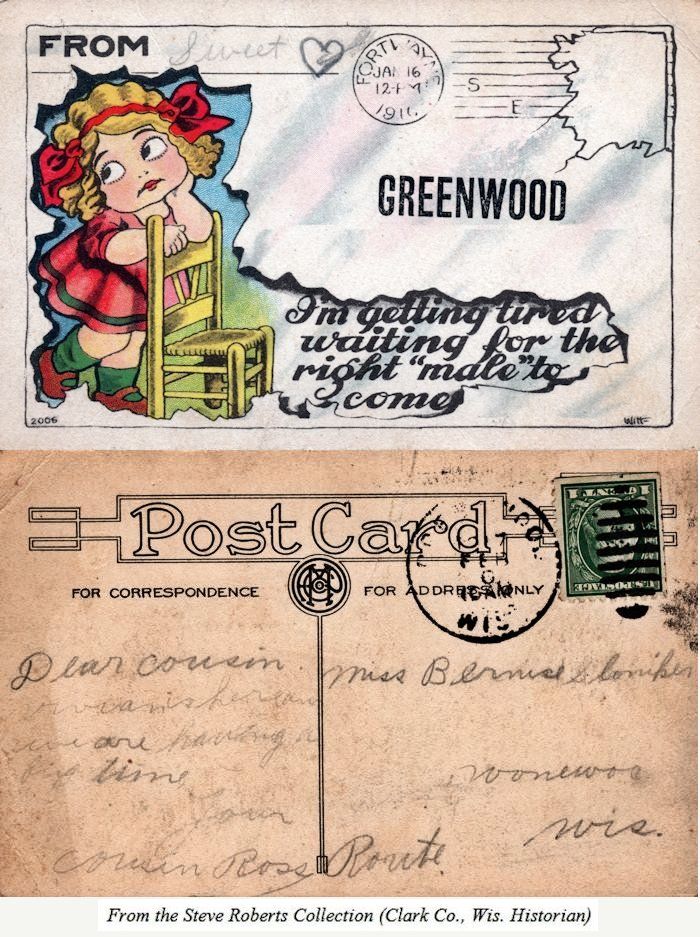 FROM Sweet
FORT WAYNE
JAN 16
12-PM
191
S
E
GREENWOOD
I'm getting tired
waiting for the
right "male" to
come
2006
Witt
Post Card
FOR CORRESPONDENCE
FOR ADDRESS ONLY
WIS
Dear cousin
Miss Bernise
we are having a
big time
wonewoc
Your
wis.
cousin Ross
Route
From the Steve Roberts Collection (Clark Co., Wis. Historian)